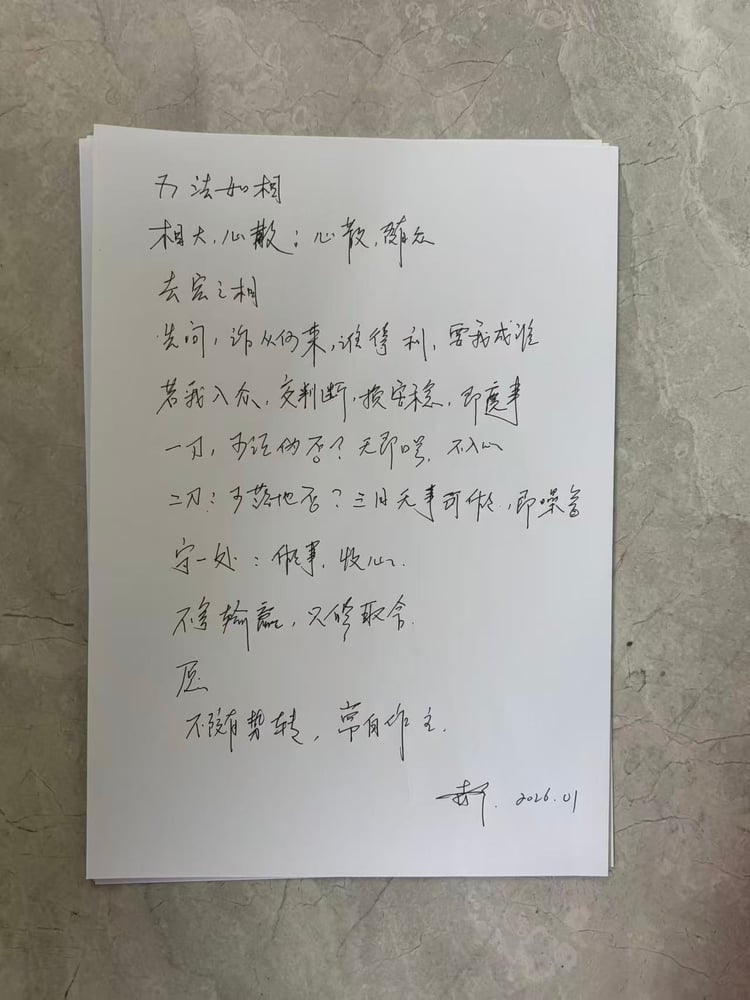 万法如相
相大,心散;心散,随众
去宏之相
先问,诉从何来,谁得利,要我成谁
若我入众,交判断,损安稳,即废事
一刀,可证伪否?无即噪,不入心
二刀:可落地否?三日无事可做,即噪音
守一处:做事,收心.
不争输赢,只修取舍.
愿
不随有势转,常自作主.
2026.01